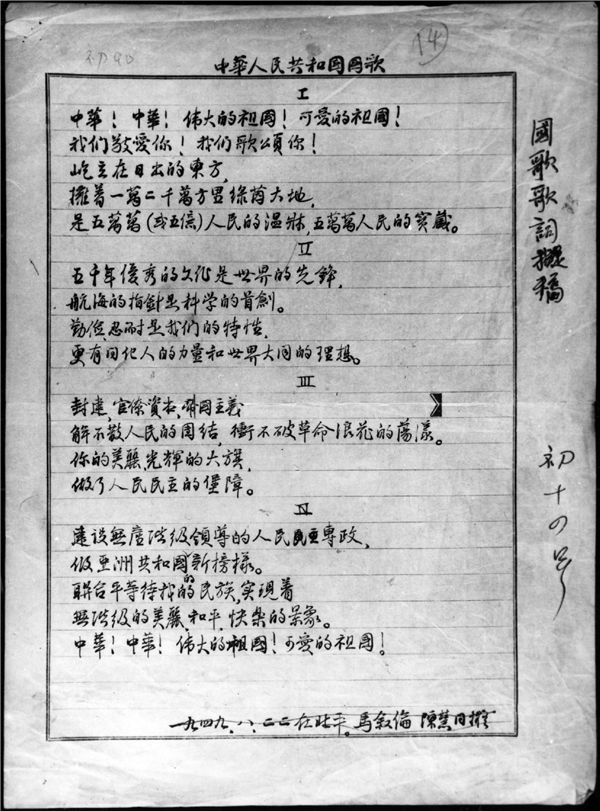 初90
14
中華人民共和国国歌
I
中華！中華！偉大的祖國！可愛的祖國！
我们敬愛你！我们歌頌你！
屹立在日出的東方，
擁着一萬二千萬方里綠蔭大地，
是五萬萬(或五億)人民的温牀，五萬萬人民的寶藏。
II
五千年優秀的文化是世界的先鋒，
航海的指針是科学的首創。
勤儉，忍耐是我們的特性，
更有同化人的力量和世界大同的理想。
III
封建，官僚資本，帝国主義
解不散人民的團结，衝不破革命浪花的蕩漾。
你的美麗，光輝的大旗，
做了人民民主的堡障。
IV
建設無產階級領導的人民民主專政，
做亞洲共和國新榜樣。
联合平等待我的民族，实現着
無階級的美麗和平，快樂的景象。
中華！中華！偉大的祖國！可愛的祖國！
一九四九、八、二二在北平。馬叙倫 陳慧同擬
國歌歌詞擬稿
初十四号